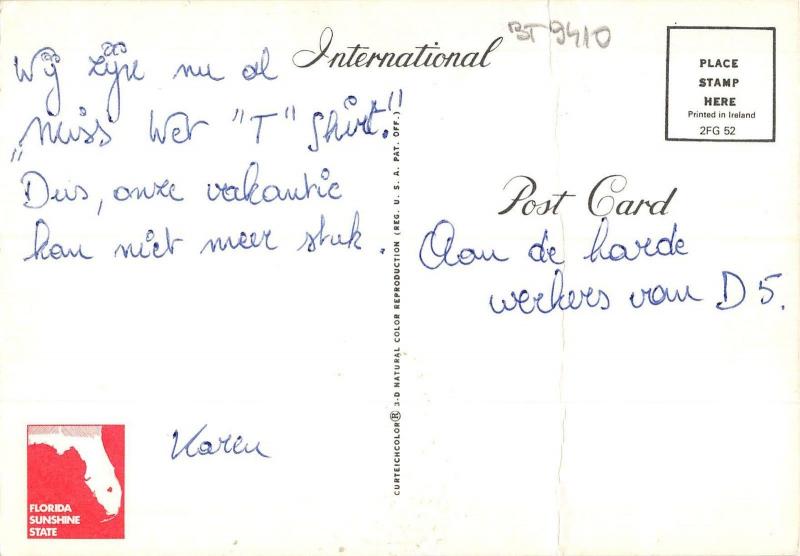 BT 9410
International
PLACE
STAMP
HERE
Printed in Ireland
2FG 52
Wij zijn nu al
„miss Wet "T" Shirt."
Dus, onze vakantie
kan niet meer stuk.
Karen
Post Card
Aan de harde
werkers van D5.
CURTEICHCOLOR® 3-D NATURAL COLOR REPRODUCTION (REG. U. S. A. PAT. OFF.)
FLORIDA
SUNSHINE
STATE